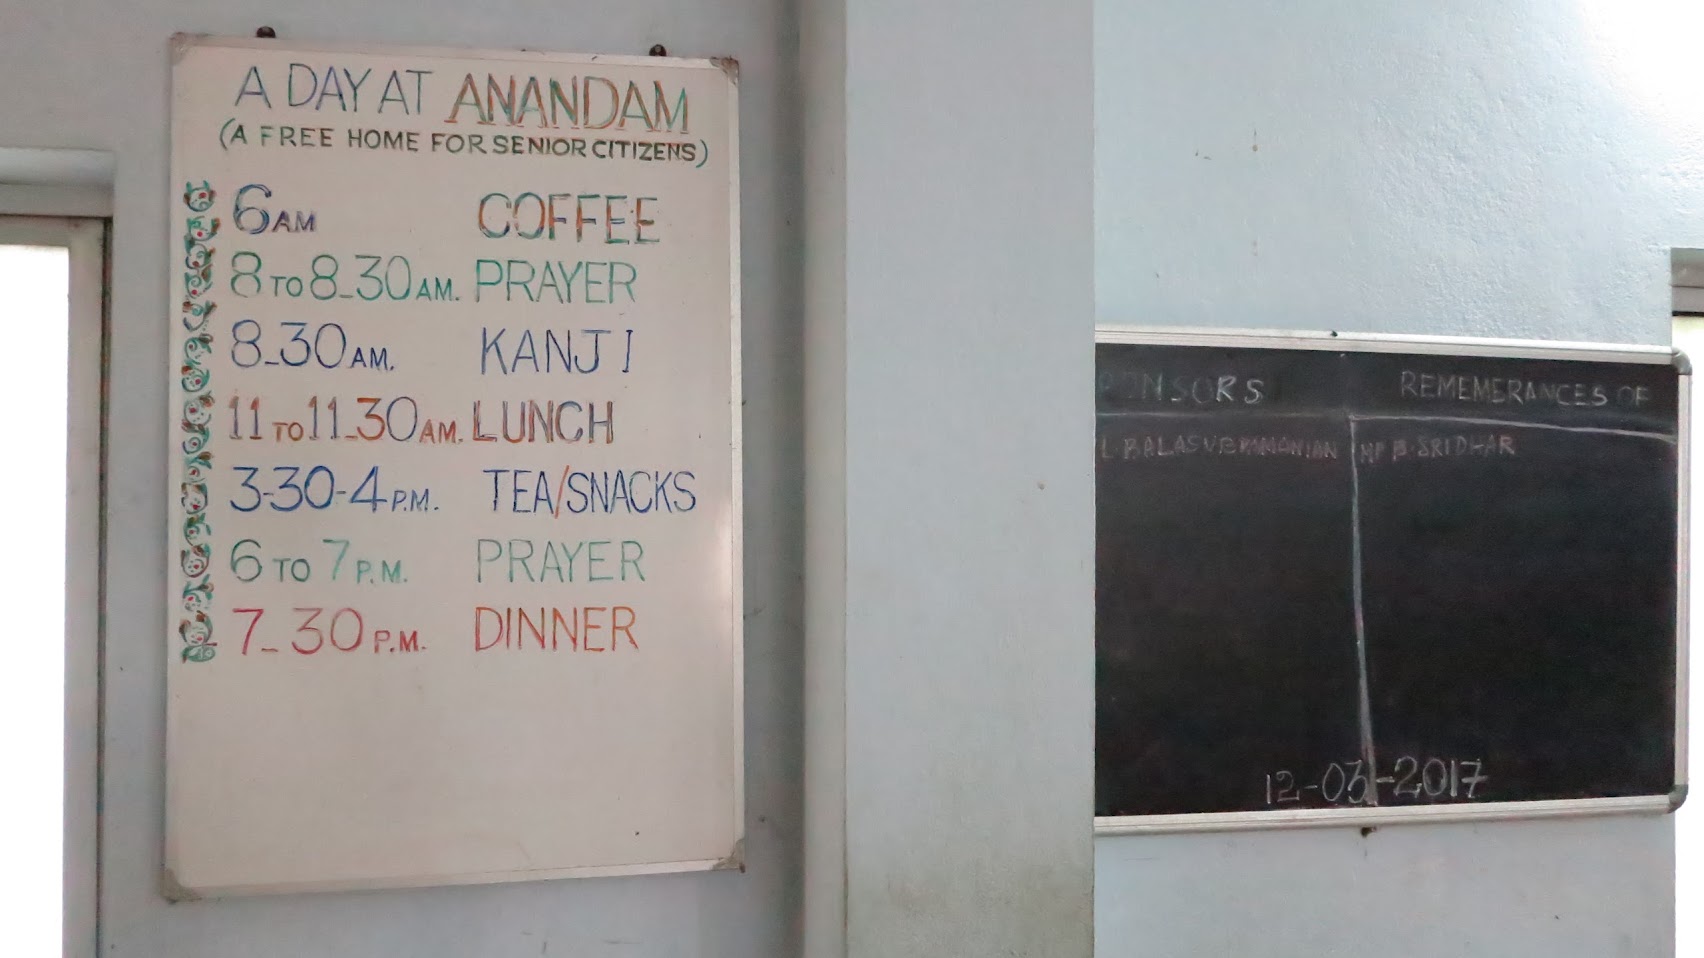 A DAY AT ANANDAM
(A FREE HOME FOR SENIOR CITIZENS)
6 AM COFFEE
8 TO 8-30 AM. PRAYER
8-30 AM. KANJI
11 TO 11-30 AM. LUNCH
3-30-4 P.M. TEA/SNACKS
6 TO 7 P.M. PRAYER
7-30 P.M. DINNER
ONSORS REMEMERANCES OF
L. BALASUBRAMANIAN MR B. SRIDHAR
12-03-2017